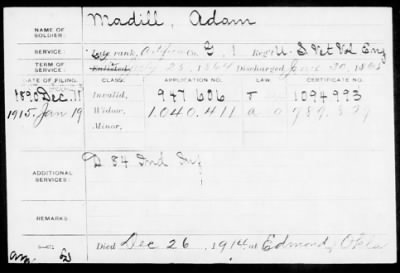 NAME OF SOLDIER: Madill, Adam
SERVICE: Late rank, Artificer Co. G, 1 Reg't U. S. Vet Vol Eng
TERM OF SERVICE: Enlisted July 23, 1864 Discharged June 30, 1865
DATE OF FILING. CLASS. APPLICATION NO. LAW. CERTIFICATE NO.
1890 Dec. 11 Invalid, 947 606 1094 993
1915, Jan 19 Widow, 1.040.411
Minor,
ADDITIONAL SERVICES: D 84 Ind Inf
REMARKS:
Died Dec 26, 1914 at Edmond, Okla